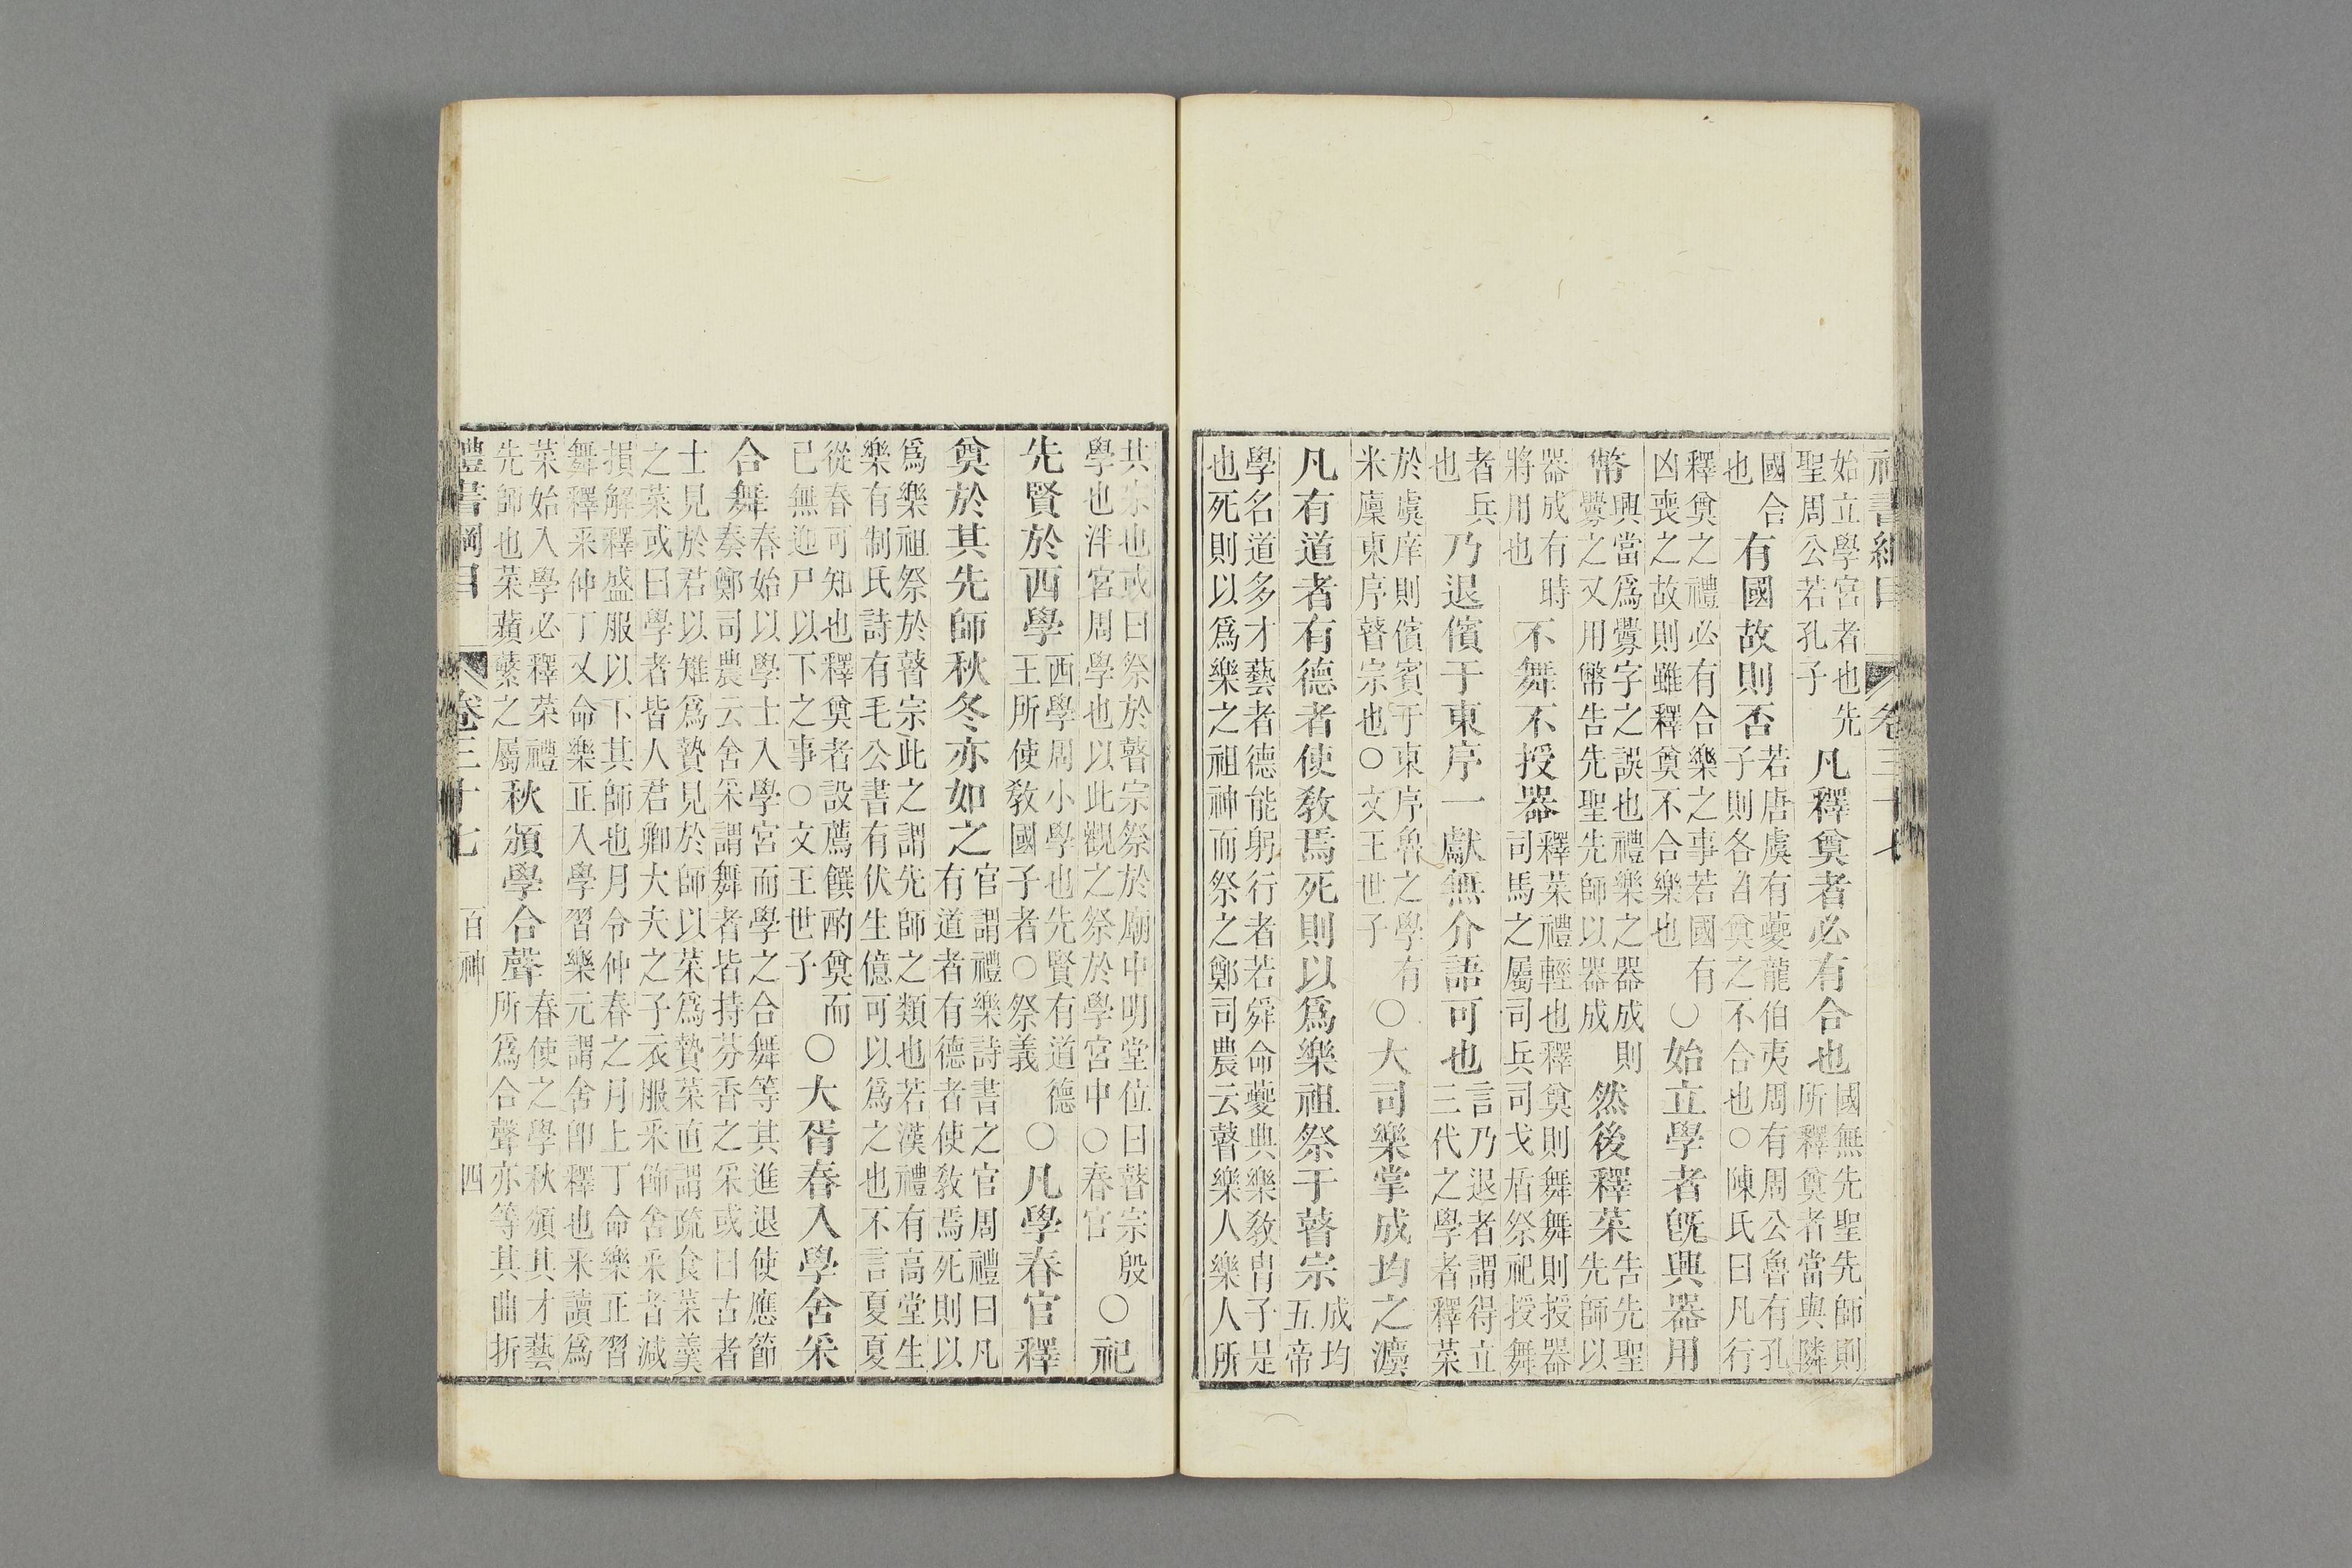 禮書綱目 卷三十七
始立學宮者也先聖周公若孔子凡釋奠者必有合也國無先聖先師則所釋奠者當與隣
國合也有國故則否若唐虞有夔龍伯夷周有周公魯有孔子則各自奠之不合也○陳氏曰凡行
釋奠之禮必有合樂之事若國有凶喪之故則雖釋奠不合樂也○始立學者旣興器用
幣興當爲釁字之誤也禮樂之器成則釁之又用幣告先聖先師以器成然後釋菜告先聖先師以
器成有時將用也不舞不授器釋菜禮輕也釋奠則舞舞則授器司馬之屬司兵司戈盾祭祀授舞
者兵也乃退儐于東序一獻無介語可也言乃退者謂得立三代之學者釋菜
於虞庠則儐賓于東序魯之學有米廩東序瞽宗也○文王世子○大司樂掌成均之灋
凡有道者有德者使敎焉死則以爲樂祖祭于瞽宗成均五帝
學名道多才藝者德能躬行者若舜命夔典樂敎冑子是也死則以爲樂之祖神而祭之鄭司農云瞽樂人樂人所
共宗也或曰祭於瞽宗祭於廟中明堂位曰瞽宗殷學也泮宮周學也以此觀之祭於學宮中○春官○祀
先賢於西學西學周小學也先賢有道德王所使敎國子者○祭義○凡學春官釋
奠於其先師秋冬亦如之官謂禮樂詩書之官周禮曰凡有道者有德者使敎焉死則以
爲樂祖祭於瞽宗此之謂先師之類也若漢禮有高堂生樂有制氏詩有毛公書有伏生億可以爲之也不言夏夏
從春可知也釋奠者設薦饌酌奠而已無迎尸以下之事○文王世子○大胥春入學舍采
合舞春始以學士入學宮而學之合舞等其進退使應節奏鄭司農云舍采謂舞者皆持芬香之采或曰古者
士見於君以雉爲贄見於師以菜爲贄菜直謂疏食菜羹之菜或曰學者皆人君卿大夫之子衣服采飾舍采者減
損解釋盛服以下其師也月令仲春之月上丁命樂正習舞釋采仲丁又命樂正入學習樂元謂舍卽釋也采讀爲
菜始入學必釋菜禮先師也菜蘋蘩之屬秋頒學合聲春使之學秋頒其才藝所爲合聲亦等其曲折
禮書綱目 卷三十七 百神 四